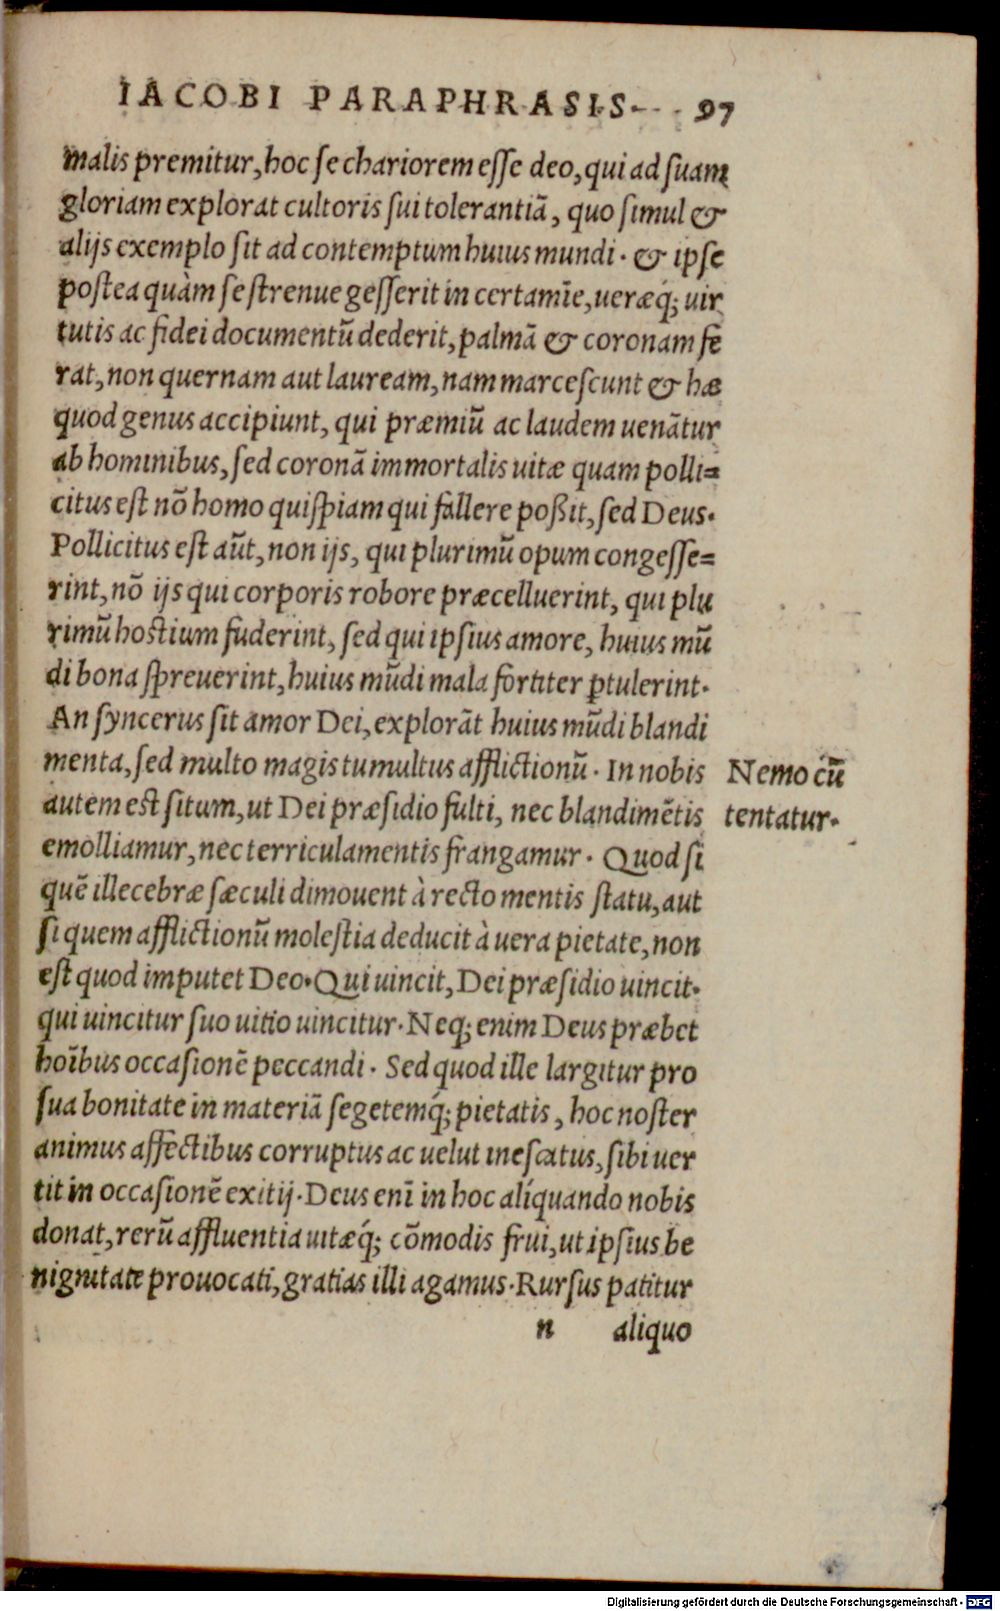 IACOBI PARAPHRASIS. 97
malis premitur, hoc se chariorem esse deo, qui ad suam
gloriam explorat cultoris sui tolerantiã, quo simul &
alijs exemplo sit ad contemptum huius mundi. & ipse
postea quàm se strenue gesserit in certamĩe, ueræq́; uir
tutis ac fidei documentũ dederit, palmã & coronam fe
rat, non quernam aut lauream, nam marcescunt & hæ
quod genus accipiunt, qui præmiũ ac laudem uenãtur
ab hominibus, sed coronã immortalis uitæ quam polli=
citus est nõ homo quispiam qui fallere poßit, sed Deus.
Pollicitus est aũt, non ijs, qui plurimũ opum congesse=
rint, nõ ijs qui corporis robore præcelluerint, qui plu
rimũ hostium fuderint, sed qui ipsius amore, huius mũ
di bona spreuerint, huius mũdi mala fortiter ꝑtulerint.
An syncerus sit amor Dei, explorãt huius mũdi blandi
menta, sed multo magis tumultus afflictionũ. In nobis
autem est situm, ut Dei præsidio fulti, nec blandimẽtis
emolliamur, nec terriculamentis frangamur. Quod si
quẽ illecebræ sæculi dimouent à recto mentis statu, aut
si quem afflictionũ molestia deducit à uera pietate, non
est quod imputet Deo. Qui uincit, Dei præsidio uincit.
qui uincitur suo uitio uincitur. Neq; enim Deus præbet
hoĩbus occasionẽ peccandi. Sed quod ille largitur pro
sua bonitate in materiã segetemq́; pietatis, hoc noster
animus affectibus corruptus ac uelut inescatus, sibi uer
tit in occasionẽ exitij. Deus enĩ in hoc alíquando nobis
donat, rerũ affluentia uitæq́; cõmodis frui, ut ipsius be
nignitate prouocati, gratias illi agamus. Rursus patitur
n aliquo
Nemo cũ
tentatur.
Digitalisierung gefördert durch die Deutsche Forschungsgemeinschaft - DFG